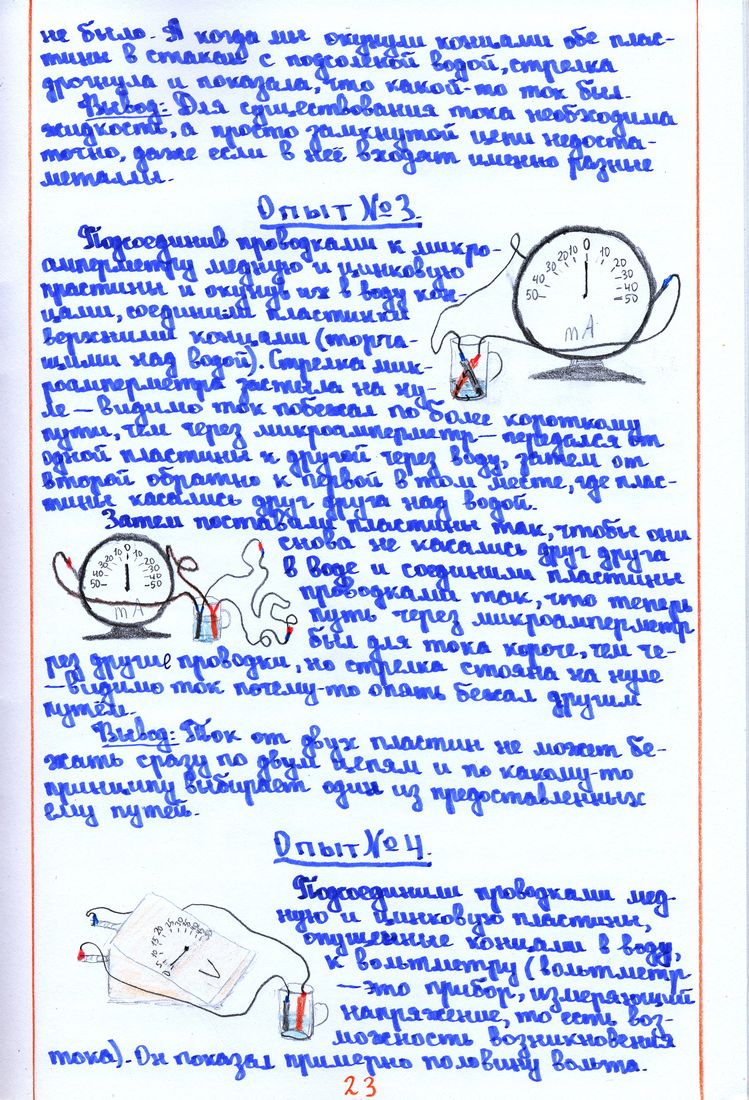 не было. А когда мы окунули концами обе плас-
тины в стакан с подсоленой водой, стрелка
дрогнула и показала, что какой-то ток был.
Вывод: Для существования тока необходима
жидкость, а просто замкнутой цепи недоста-
точно, даже если в неё входят именно разные
металлы.
Опыт №3.
Подсоединив проводками к микро-
амперметру медную и цинковую
пластины и окунув их в воду кон-
цами, соединили пластинки
верхними концами (торча-
щими над водой). Стрелка мик-
роамперметра застыла на ну-
ле — видимо ток побежал по более короткому
пути, чем через микроамперметр — передался от
одной пластины к другой через воду, затем от
второй обратно к первой в том месте, где плас-
тины касались друг друга над водой.
50 40 30 20 10 0 10 20 30 40 50
mA
Затем поставили пластины так, чтобы они
снова не касались друг друга
в воде и соединили пластины
проводками так, что теперь
путь через микроамперметр
был для тока короче, чем че-
рез другие проводки, но стрелка стояла на нуле
— видимо ток почему-то опять бежал другим
путём.
50 40 30 20 10 0 10 20 30 40 50
mA
Вывод: Ток от двух пластин не может бе-
жать сразу по двум цепям и по какому-то
принципу выбирает один из предоставленных
ему путей.
Опыт №4.
Подсоединили проводками мед-
ную и цинковую пластины,
опущенные концами в воду,
к вольтметру (вольтметр
— это прибор, измеряющий
напряжение, то есть воз-
можность возникновения
тока). Он показал примерно половину вольта.
V
23